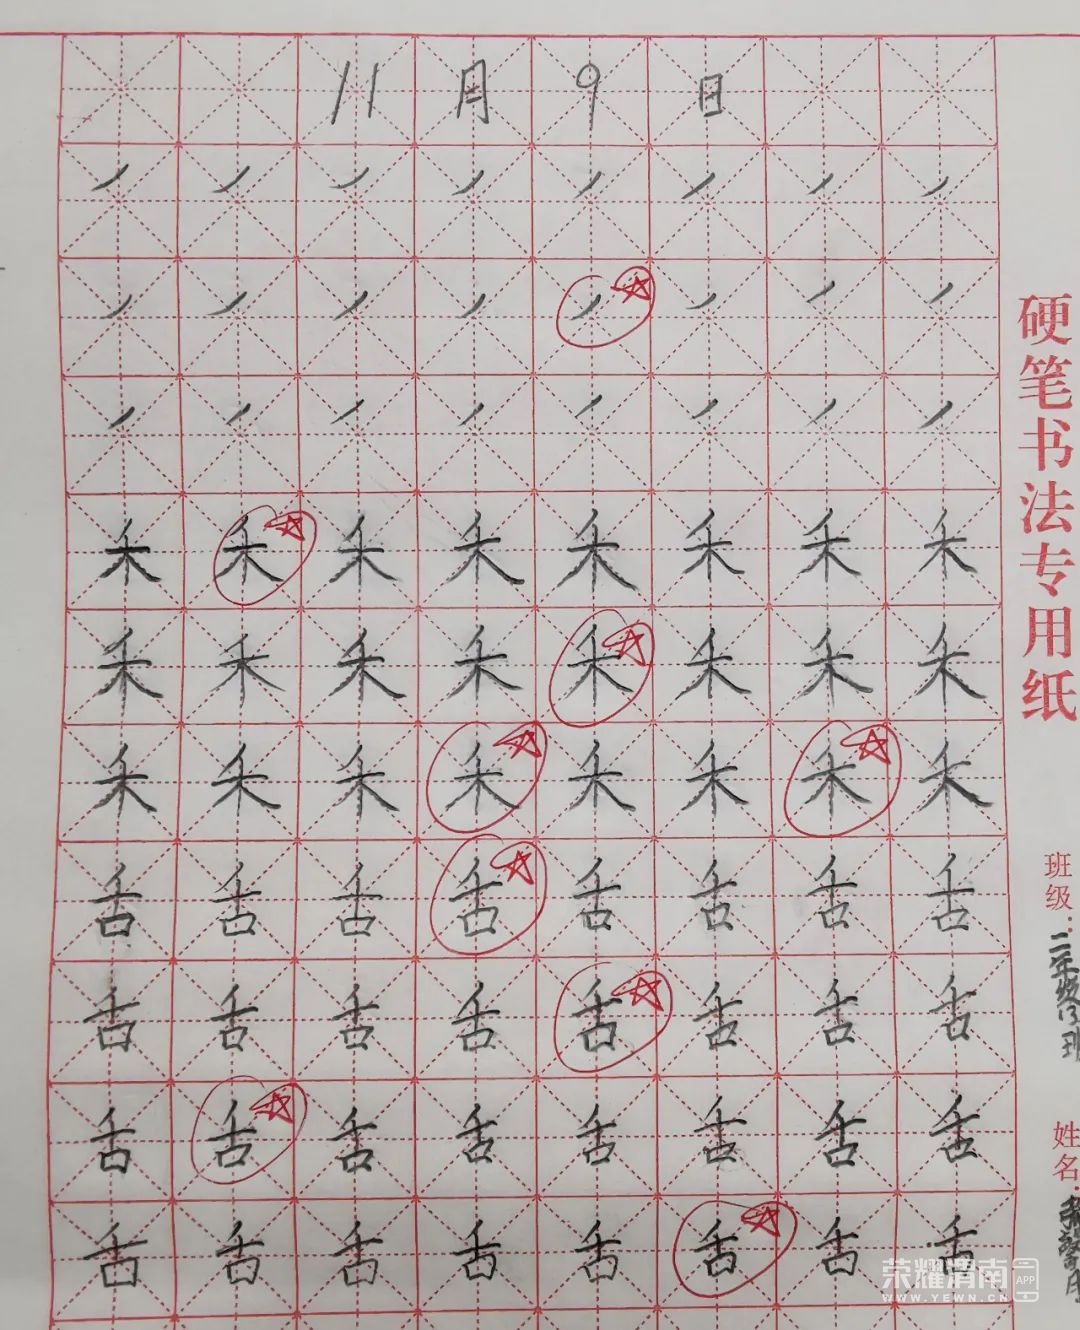 11月9日
丿丿丿丿丿丿丿丿
丿丿丿丿丿丿丿丿
丿丿丿丿丿丿丿丿
禾禾禾禾禾禾禾禾
禾禾禾禾禾禾禾禾
禾禾禾禾禾禾禾禾
舌舌舌舌舌舌舌舌
舌舌舌舌舌舌舌舌
舌舌舌舌舌舌舌舌
舌舌舌舌舌舌舌舌
硬笔书法专用纸
班级：二年级13班
姓名：
荣耀渭南APP
WWW.YEWN.CN